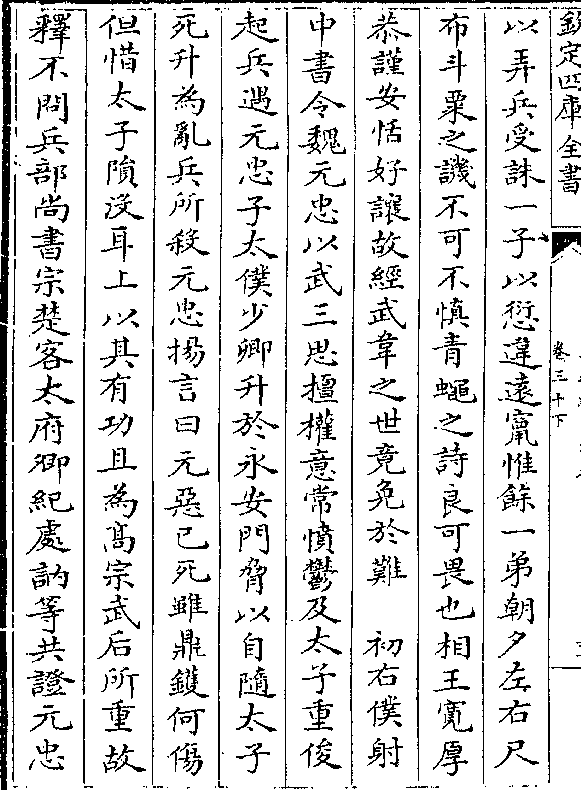 欽定四庫全書
卷三十下
以弄兵受誅一子以愆違遠竄惟餘一弟朝夕左右尺
布斗粟之譏不可不慎青蠅之詩良可畏也相王寬厚
恭謹安恬好讓故經武韋之世竟免於難　初右僕射
中書令魏元忠以武三思擅權意常憤鬱及太子重俊
起兵遇元忠子太僕少卿升於永安門脅以自隨太子
死升為亂兵所殺元忠揚言曰元惡已死雖鼎鑊何傷
但惜太子隕沒耳上以其有功且為高宗武后所重故
釋不問兵部尚書宗楚客太府卿紀處訥等共證元忠